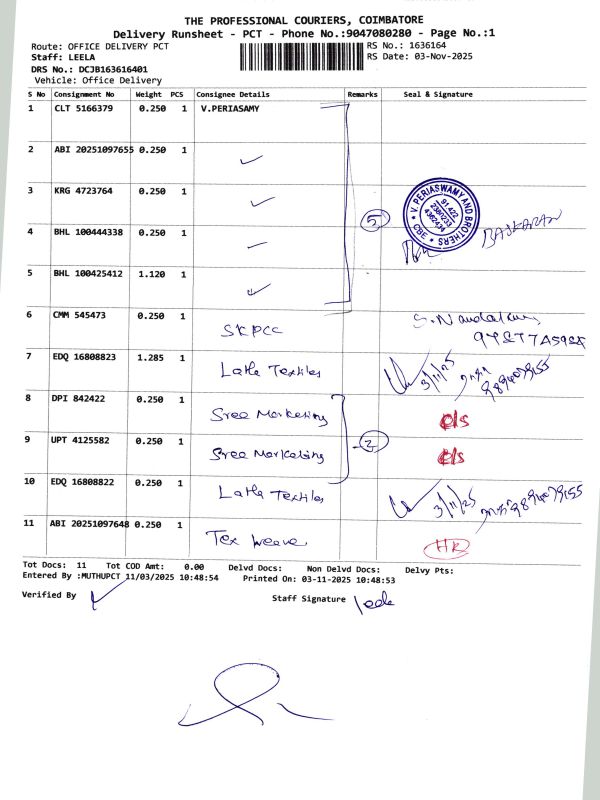 THE PROFESSIONAL COURIERS, COIMBATORE
Delivery Runsheet - PCT - Phone No.:9047080280 - Page No.:1
Route: OFFICE DELIVERY PCT RS No.: 1636164
Staff: LEELA RS Date: 03-Nov-2025
DRS No.: DCJB163616401
Vehicle: Office Delivery
S No Consignment No Weight PCS Consignee Details Remarks Seal & Signature
1 CLT 5166379 0.250 1 V.PERIASAMY
2 ABI 20251097655 0.250 1 ✓
3 KRG 4723764 0.250 1 ✓
5
V. PERIASWAMY AND BROTHERS
CBE
4 BHL 100444338 0.250 1 ✓ BASKARAN
5 BHL 100425412 1.120 1 ✓
6 CMM 545473 0.250 1 SKPCC
7 EDQ 16808823 1.285 1 Latha Textiles 3/11/25
8 DPI 842422 0.250 1 Sree Marketing c/s
2
9 UPT 4125582 0.250 1 Sree Marketing c/s
10 EDQ 16808822 0.250 1 Latha Textiles 3/11/25
11 ABI 20251097648 0.250 1 Tex weave HR
Tot Docs: 11 Tot COD Amt: 0.00 Delvd Docs: Non Delvd Docs: Delvy Pts:
Entered By :MUTHUPCT 11/03/2025 10:48:54 Printed On: 03-11-2025 10:48:53
Verified By Staff Signature leela